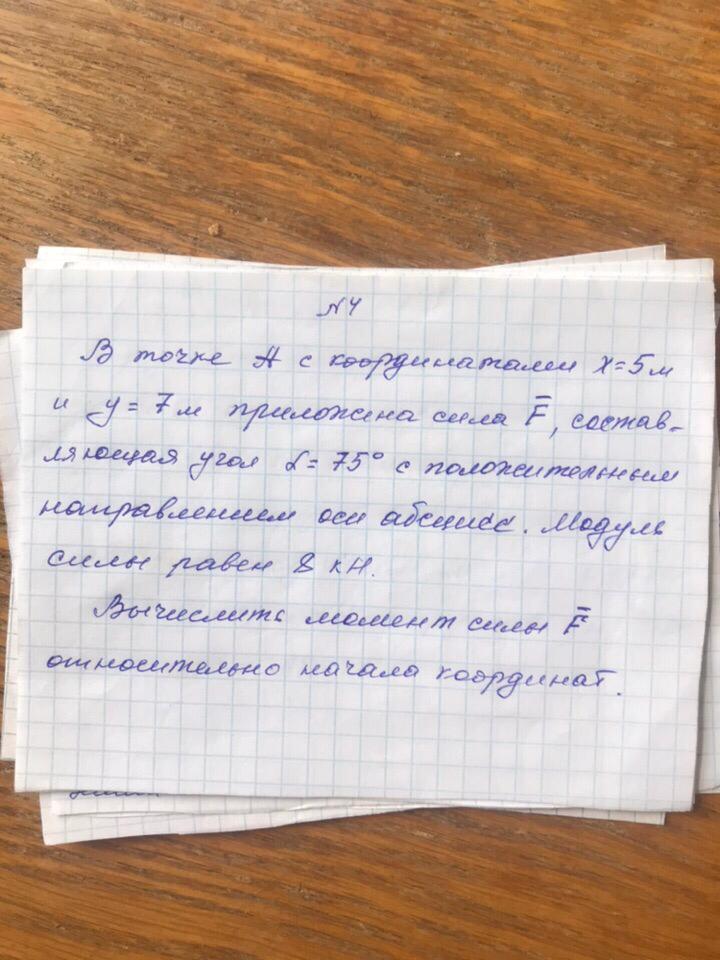 №4
В точке А с координатами x=5м
и y=7м приложена сила F̅, состав-
ляющая угол α=75° с положительным
направлением оси абсцисс. Модуль
силы равен 8 кН.
Вычислить момент силы F̅
относительно начала координат.